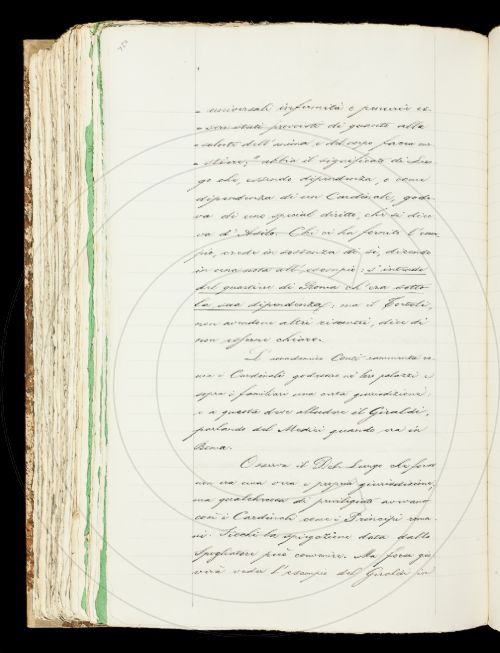 « universali infermità e pareva es-
« sere stati provvisti di quanto alla
« salute dell'anima e del corpo facea me-
« stiere, » abbia il significato di luo-
go che, essendo dipendenza, o come
dipendenza di un Cardinale, gode-
va di uno special diritto, che si dice-
va d'Asilo. Chi ci ha fornito l'esem-
pio, crede in sostanza di sì, dicendo
in una nota all'esempio: s'intende
del quartiere di Roma ch'era sotto
la sua dipendenza; ma il Tortoli,
non avendone altri riscontri, dice di
non esserne chiaro.
L'accademico Conti rammenta co-
me i Cardinali godessero ne' loro palazzi e
sopra i familiari una certa giurisdizione,
e a questa deve alludere il Giraldi,
parlando del Medici quando era in
Roma.
Osserva il Del Lungo che forse
non era una vera e propria giurisdizione,
ma qualchecosa di privilegiato avevano
così i Cardinali come i Principi roma-
ni. Sicchè la spiegazione data dallo
Spogliatore può convenire. Ma forse gio-
verà veder l'esempio del Giraldi in